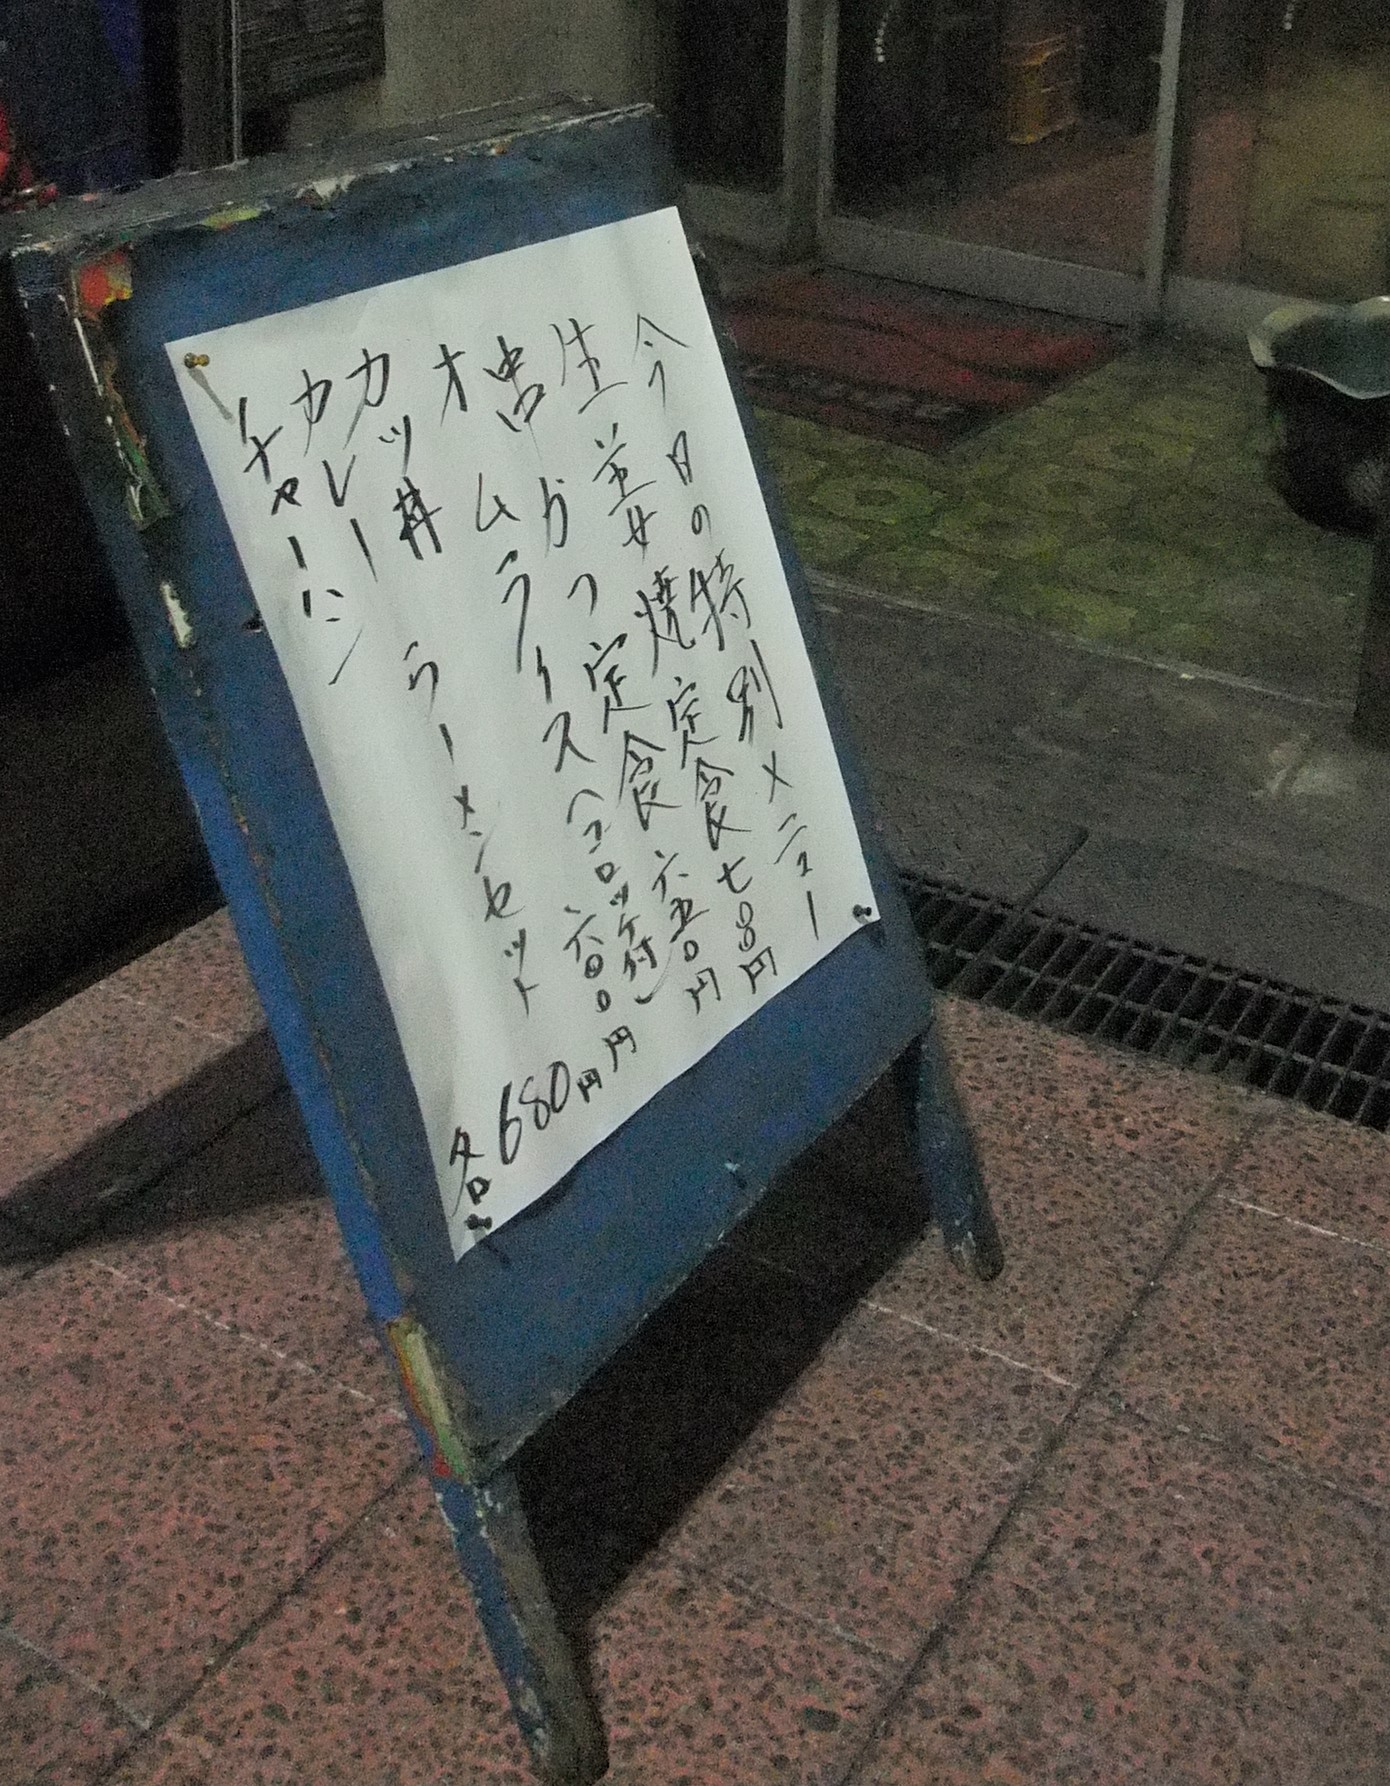 今日の特別メニュー
生姜焼定食 七〇〇円
串かつ定食 六五〇円
オムライス(コロッケ付) 六〇〇円
カツ丼 ラーメンセット
カレー
チャーハン
各680円